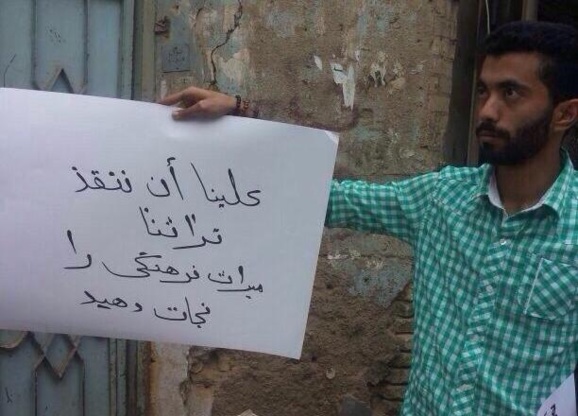 علينا أن ننقذ
تراثنا
میراث فرهنگی را
نجات دهید